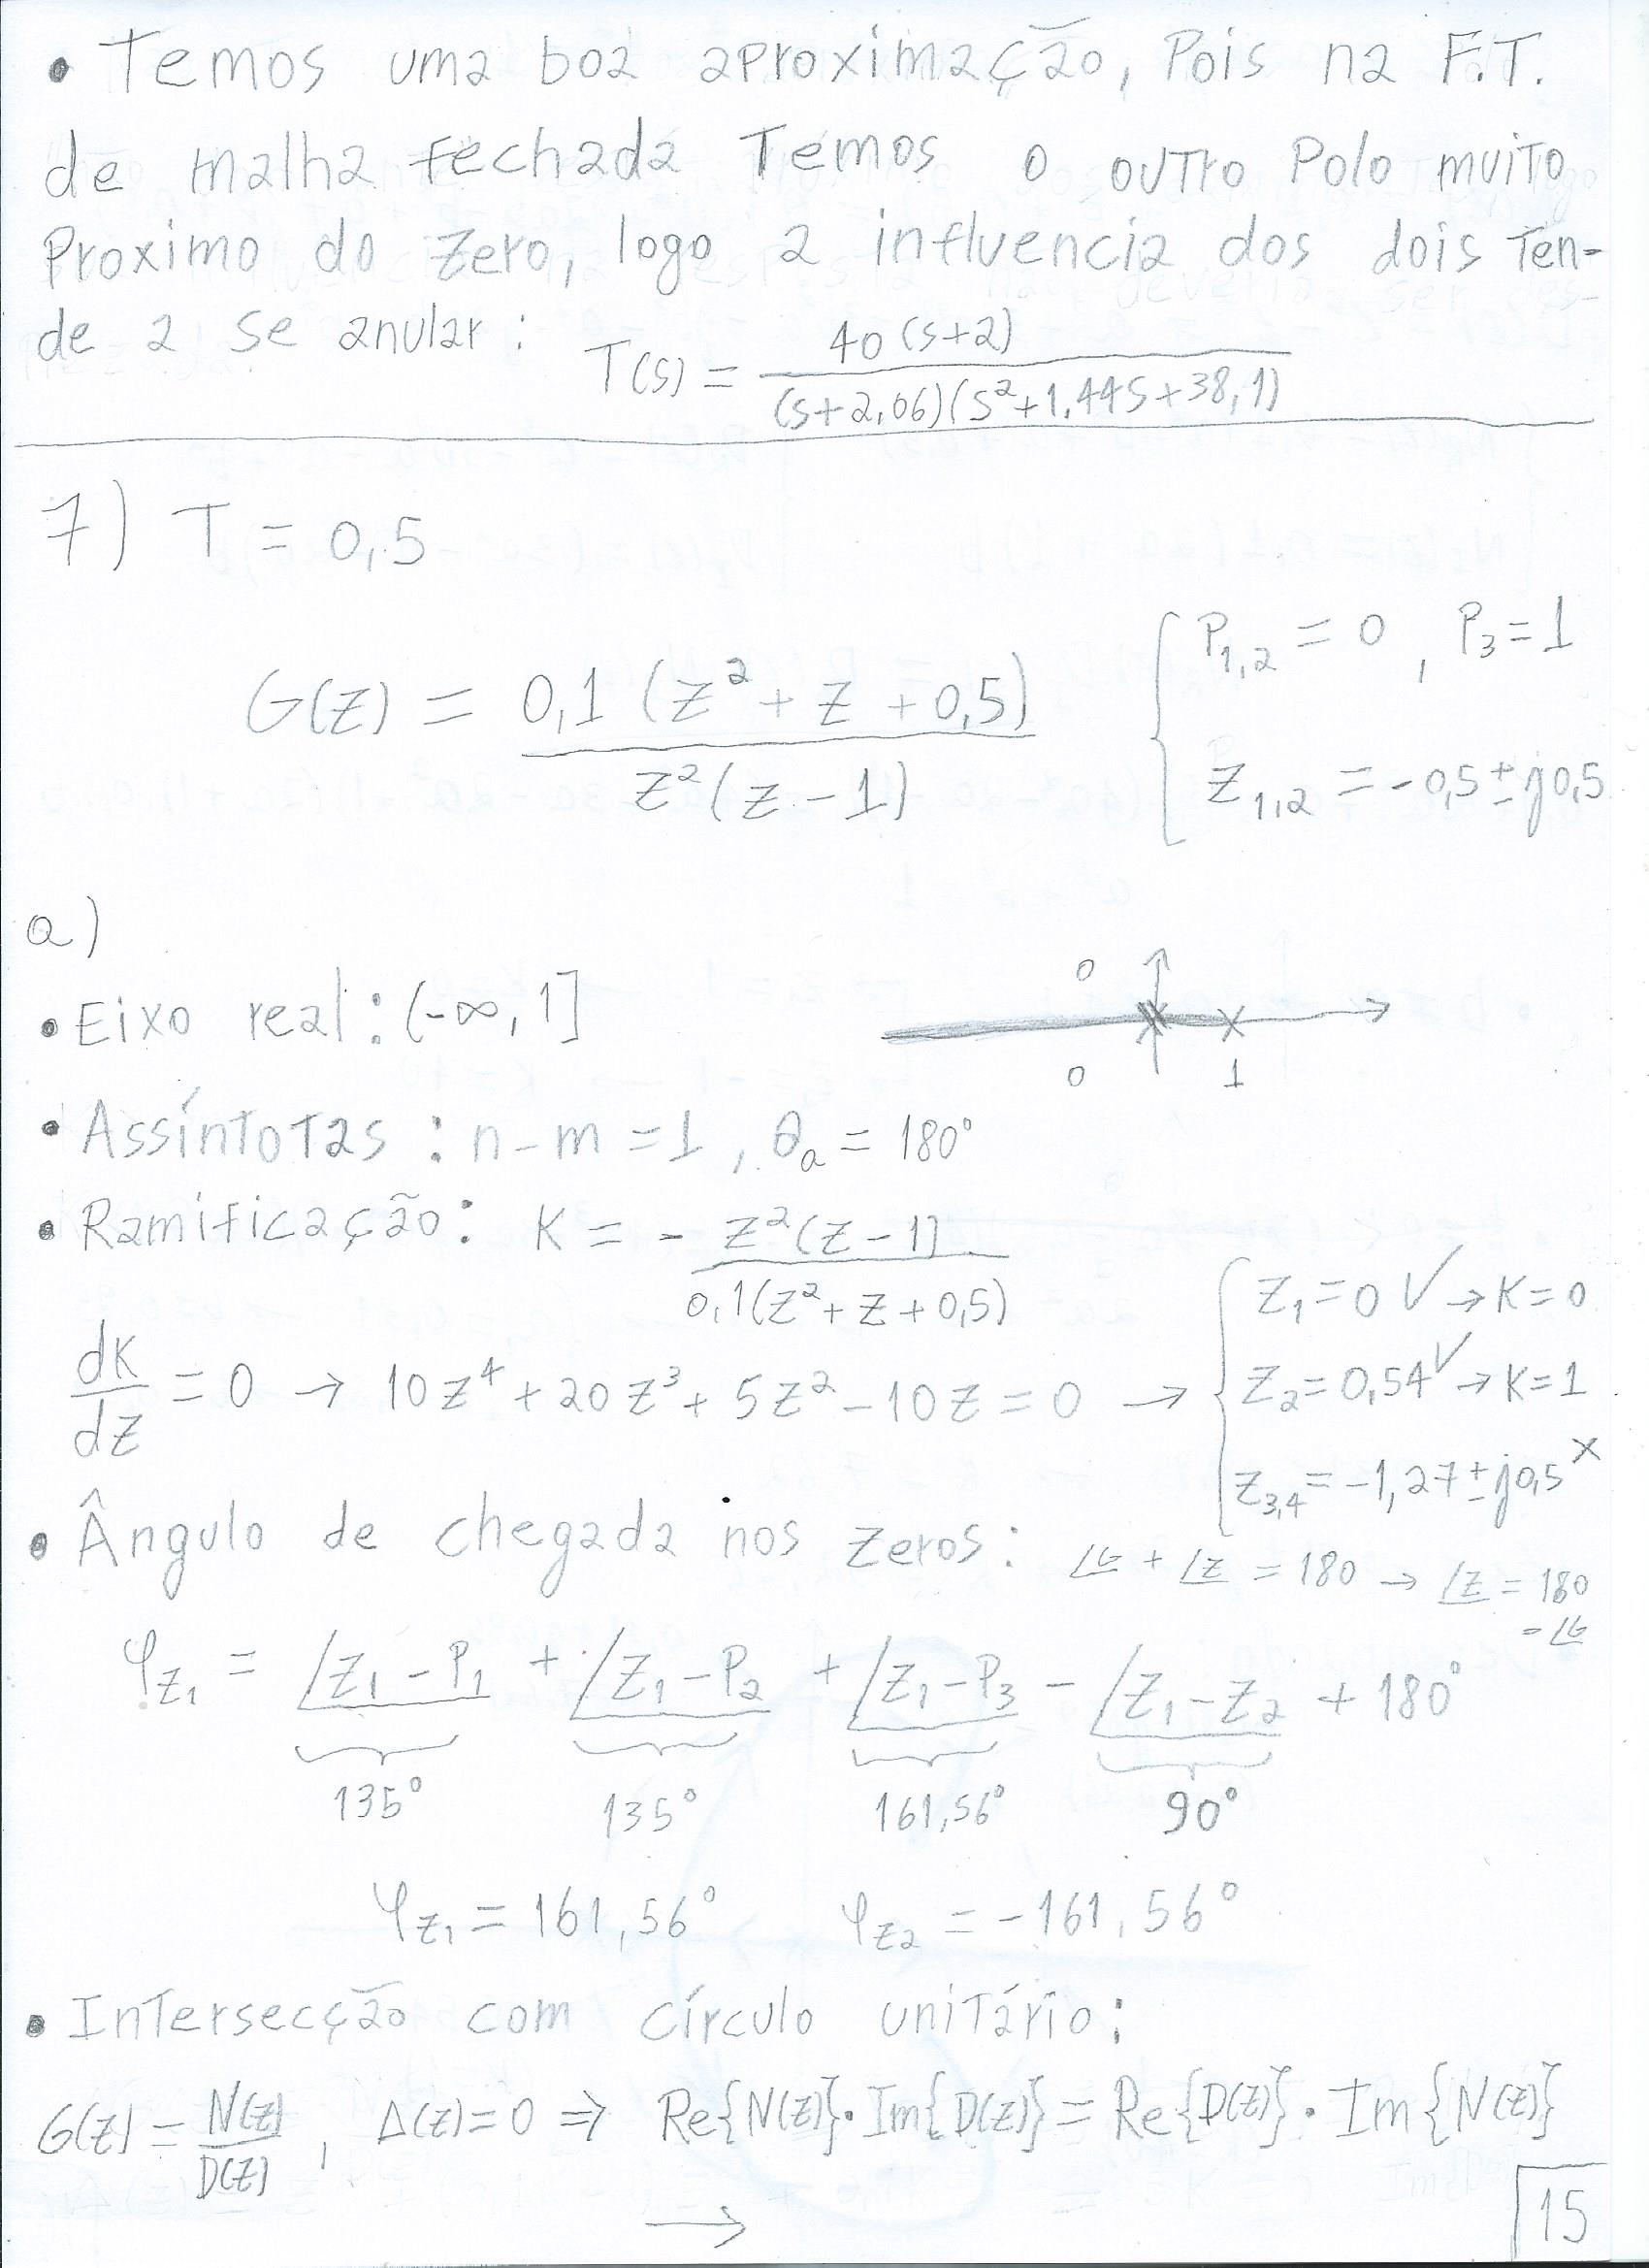 • Temos uma boa aproximação, Pois na F.T.
de malha fechada Temos o outro Polo muito
Proximo do zero, logo a influencia dos dois Ten-
de a se anular: T(s) = 40(s+2) / (s+2,06)(s²+1,44s+38,1)
7) T = 0,5
G(z) = 0,1 (z² + z + 0,5) / z²(z-1)
{ P₁,₂ = 0 , P₃ = 1
Z₁,₂ = -0,5 ± j0,5
a)
• Eixo real: (-∞, 1]
0
0 1
• Assíntotas: n-m = 1, θₐ = 180°
• Ramificação: K = - z²(z-1) / 0,1(z² + z + 0,5)
dK/dz = 0 → 10z⁴ + 20z³ + 5z² - 10z = 0 → { Z₁ = 0 ✓ → K = 0
Z₂ = 0,54 ✓ → K = 1
Z₃,₄ = -1,27 ± j0,5 ×
• Ângulo de chegada nos zeros: ∠G + ∠Z = 180 → ∠Z = 180
= ∠G
φz₁ = ∠Z₁ - P₁ + ∠Z₁ - P₂ + ∠Z₁ - P₃ - ∠Z₁ - Z₂ + 180°
135° 135° 161,56° 90°
φz₁ = 161,56° φz₂ = -161,56°
• Intersecção com círculo unitário:
G(z) = N(z)/D(z) , Δ(z) = 0 ⇒ Re{N(z)}·Im{D(z)} = Re{D(z)}·Im{N(z)}
→
15